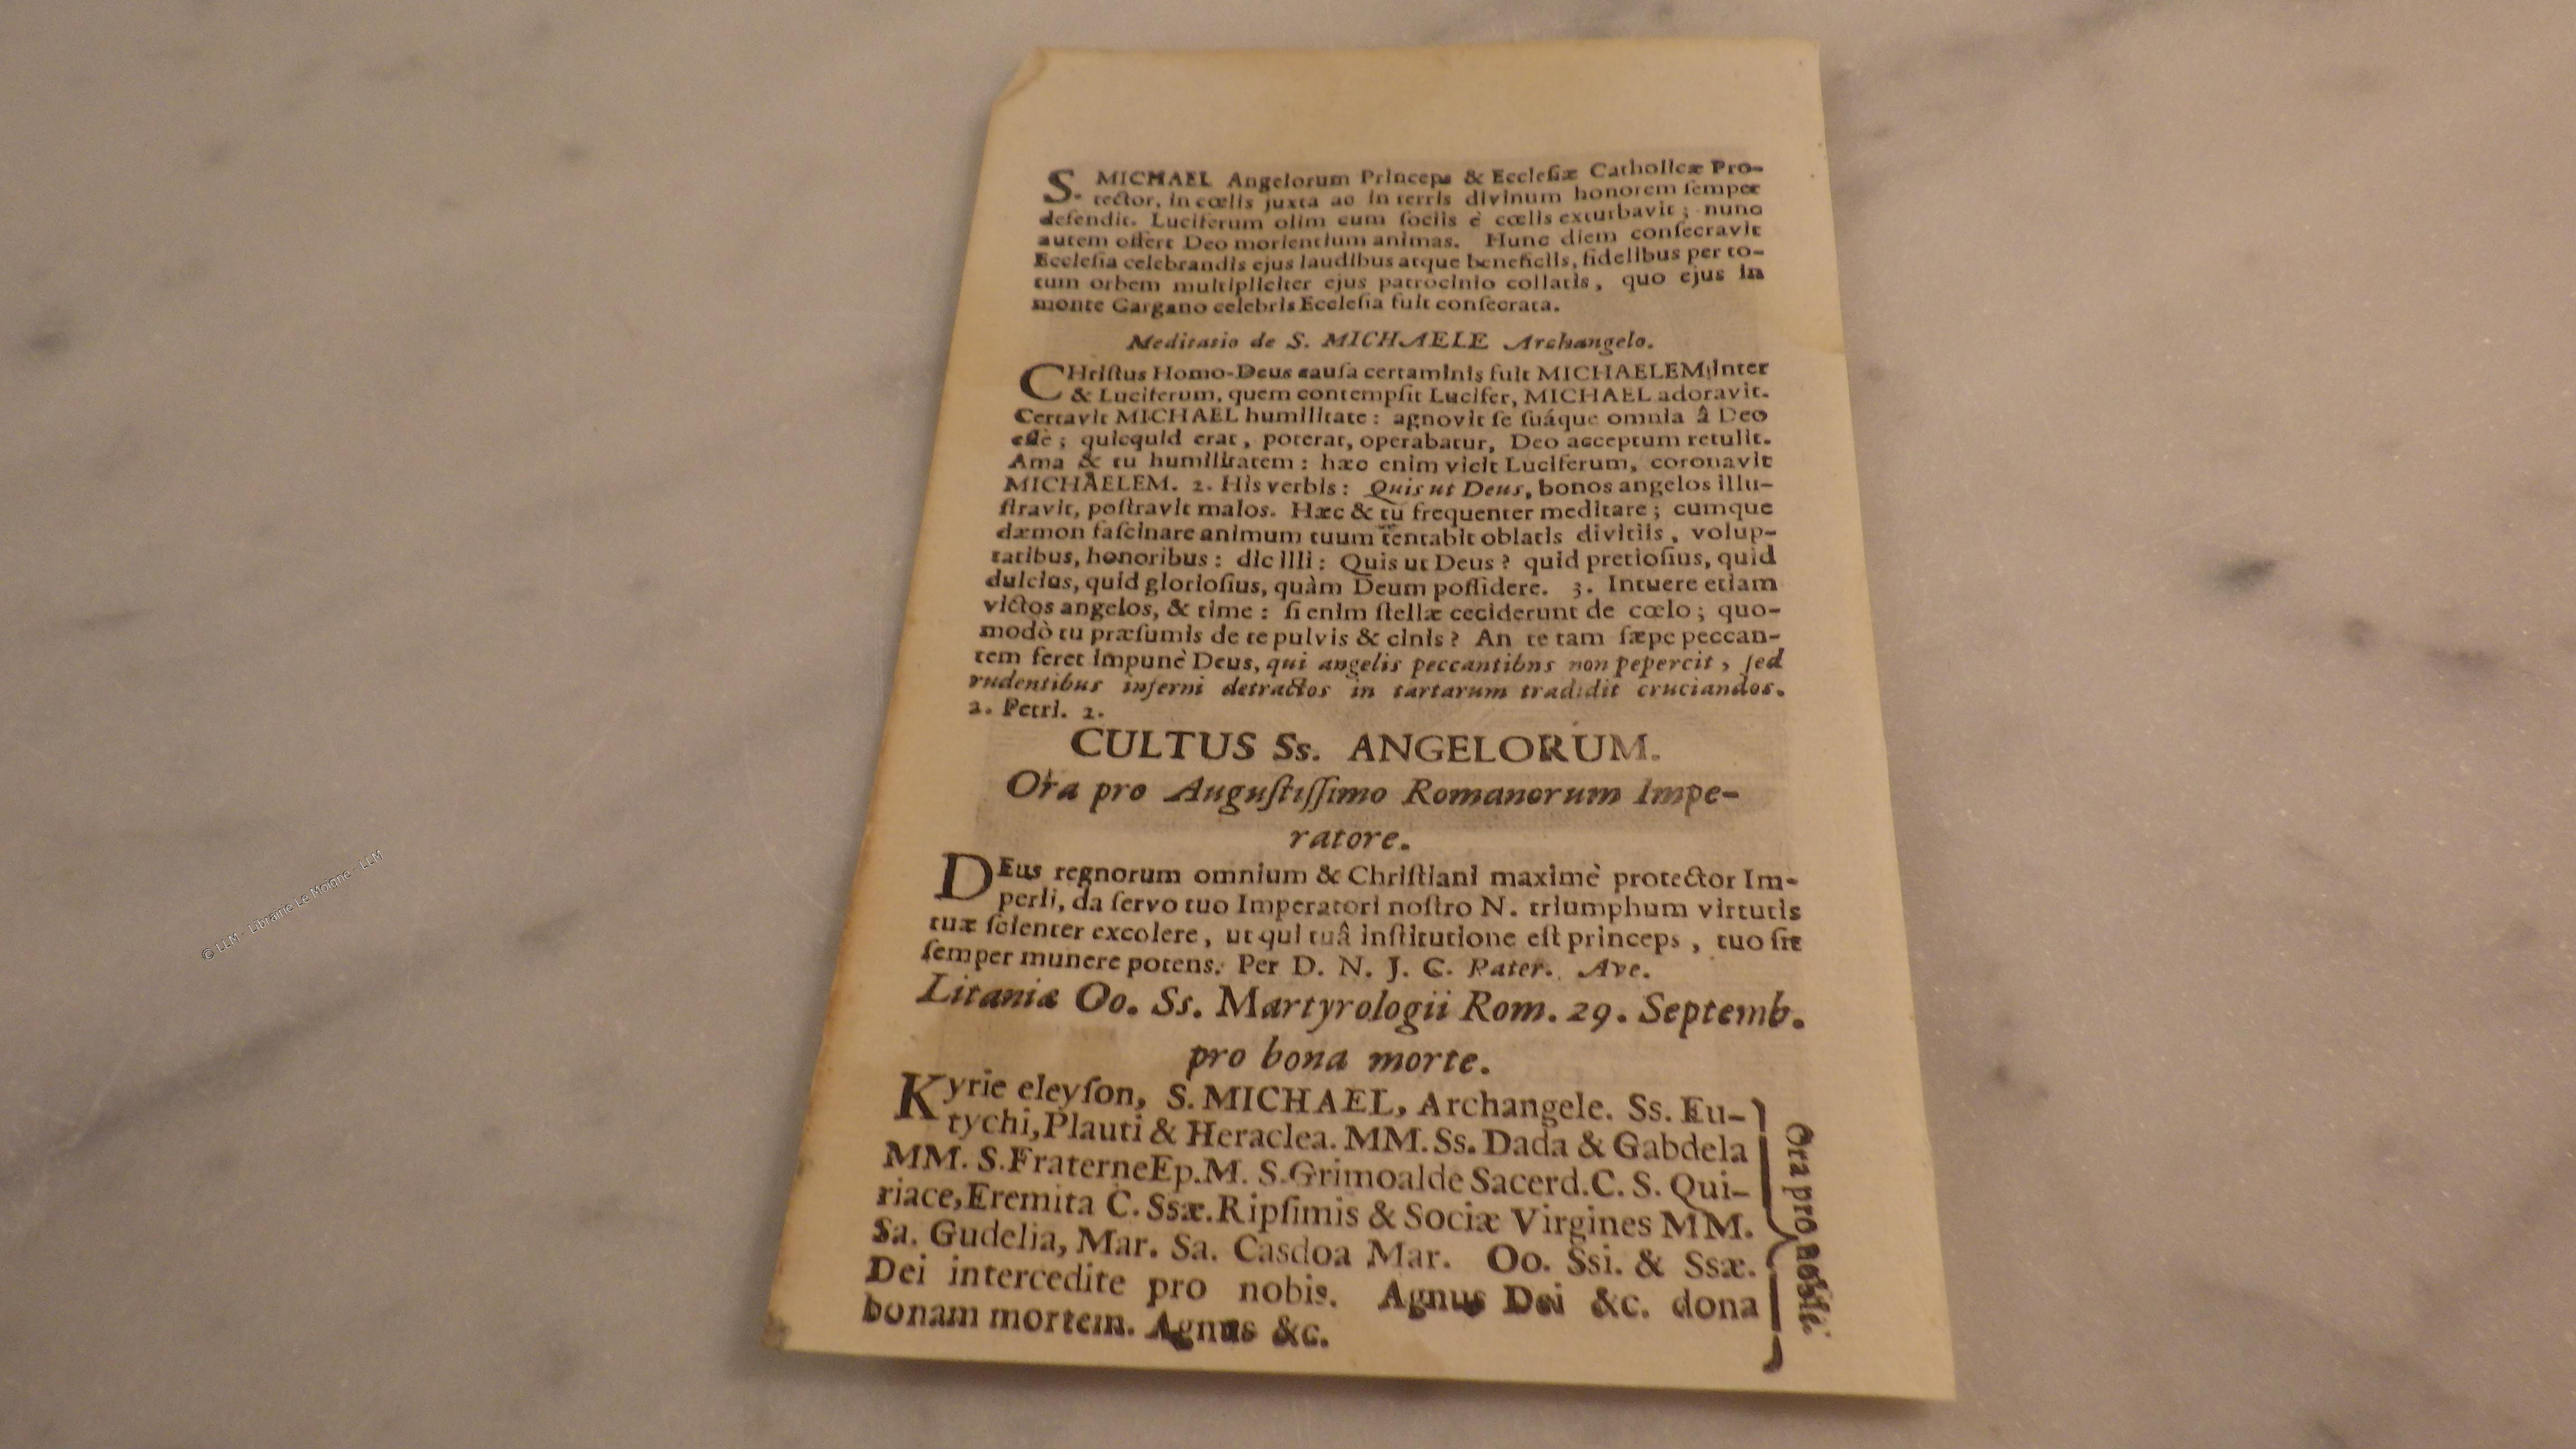 S. MICHAEL Angelorum Princeps & Eccleſiæ Catholicæ Pro-
tector, in cœlis juxta ac in terris divinum honorem ſemper
defendit. Luciferum olim cum ſociis è cœlis exturbavit; nunc
autem offert Deo morientium animas. Hunc diem conſecravit
Eccleſia celebrandis ejus laudibus atque beneficiis, fidelibus per to-
tum orbem multipliciter ejus patrocinio collatis, quo ejus in
monte Gargano celebris Eccleſia fuit conſecrata.
Meditatio de S. MICHAELE Archangelo.
CHriſtus Homo-Deus cauſa certaminis fuit MICHAELEM inter
& Luciferum, quem contempſit Lucifer, MICHAEL adoravit.
Certavit MICHAEL humilitate: agnovit ſe ſuáque omnia â Deo
eſſe; quicquid erat, poterat, operabatur, Deo acceptum retulit.
Ama & tu humilitatem: hæc enim vicit Luciferum, coronavit
MICHAELEM. 2. His verbis: Quis ut Deus, bonos angelos illu-
ſtravit, poſtravit malos. Hæc & tu frequenter meditare; cumque
dæmon faſcinare animum tuum tentabit oblatis divitiis, volup-
tatibus, honoribus: dic illi: Quis ut Deus? quid pretioſius, quid
dulcius, quid glorioſius, quàm Deum poſſidere. 3. Intuere etiam
victos angelos, & time: ſi enim ſtellæ ceciderunt de cœlo; quo-
modò tu præſumis de te pulvis & cinis? An te tam ſæpe peccan-
tem feret impunè Deus, qui angelis peccantibns non pepercit, ſed
rudentibus inferni detractos in tartarum tradidit cruciandos.
2. Petri. 2.
CULTUS Ss. ANGELORUM.
Ora pro Auguſtiſſimo Romanorum Impe-
ratore.
DEus regnorum omnium & Chriſtiani maximè protector Im-
perii, da ſervo tuo Imperatori noſtro N. triumphum virtutis
tuæ ſcienter excolere, ut qui tuâ inſtitutione eſt princeps, tuo ſit
ſemper munere potens. Per D. N. J. C. Pater. Ave.
Litaniæ Oo. Ss. Martyrologii Rom. 29. Septemb.
pro bona morte.
Kyrie eleyſon, S. MICHAEL, Archangele. Ss. Eu-
tychi, Plauti & Heraclea. MM. Ss. Dada & Gabdela
MM. S. Fraterne Ep. M. S. Grimoalde Sacerd. C. S. Qui-
riace, Eremita C. Ssæ. Ripſimis & Sociæ Virgines MM.
Sa. Gudelia, Mar. Sa. Casdoa Mar. Oo. Ssi. & Ssæ.
Dei intercedite pro nobis. Agnus Dei &c. dona
bonam mortem. Agnus &c.
Ora pro nobis.
© LLM - Librairie Le Moigne - LLM